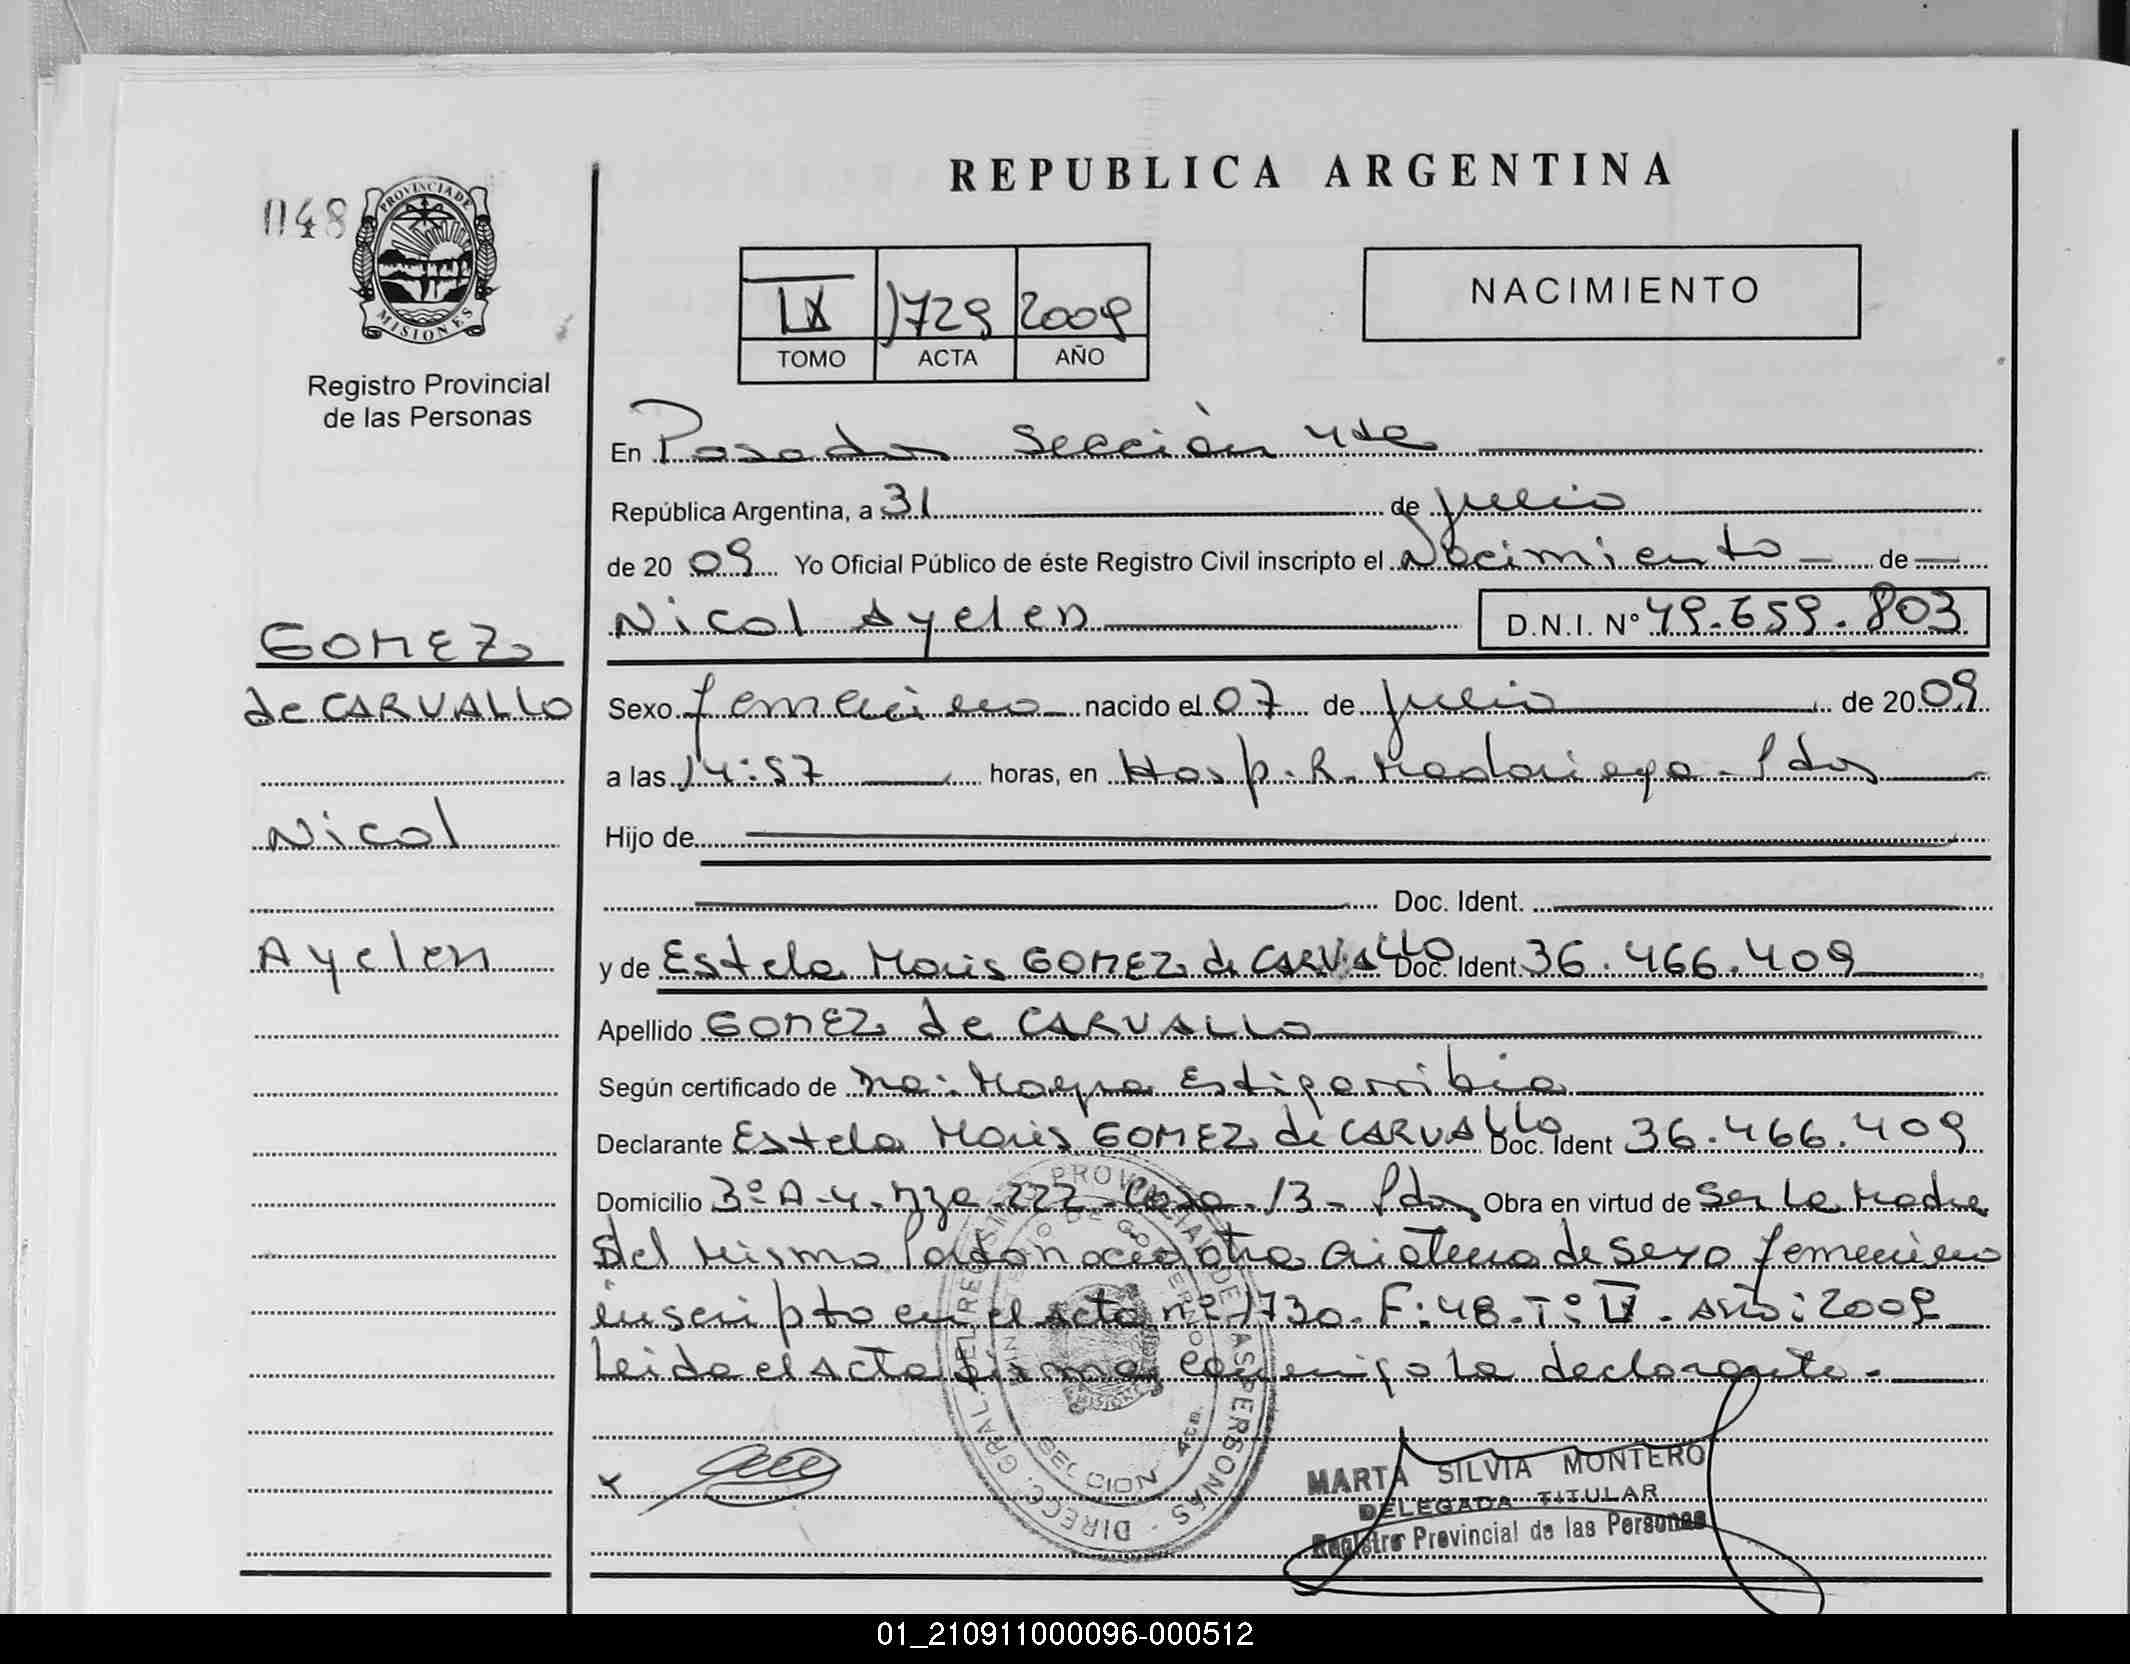 REPUBLICA ARGENTINA
048
PROVINCIA DE
MISIONES
Registro Provincial
de las Personas
1729 2009
TOMO ACTA AÑO
NACIMIENTO
En Posadas Sección 4ta
República Argentina, a 31 de julio
de 2009 Yo Oficial Público de éste Registro Civil inscripto el Nacimiento de
Nicol Ayelen D.N.I. N° 49.659.803
GOMEZ
de CARVALLO
Nicol
Ayelen
Sexo femenino nacido el 07 de julio de 2009
a las 14:57 horas, en Hosp. R. Madariaga - Pdas
Hijo de
Doc. Ident.
y de Estela Maris GOMEZ de CARVALLO Doc. Ident. 36.466.409
Apellido GOMEZ de CARVALLO
Según certificado de Estigarribia
Declarante Estela Maris GOMEZ de CARVALLO Doc. Ident 36.466.409
Domicilio 3° A-4-Mza 222-Casa-13-Pdas Obra en virtud de Ser la Madre
Del mismo Parto nacio otra criatura de sexo femenino
inscripto en el acta n° 1730. F: 48. T° Año: 2009
Leida el acta firma conmigo la declarante.
DIRECC. GRAL. DEL REGISTRO PROVINCIAL DE LAS PERSONAS
MINISTERIO DE GOBIERNO
MISIONES
SECCION 4ta.
MARTA SILVIA MONTERO
DELEGADA TITULAR
Registro Provincial de las Personas
01_210911000096-000512